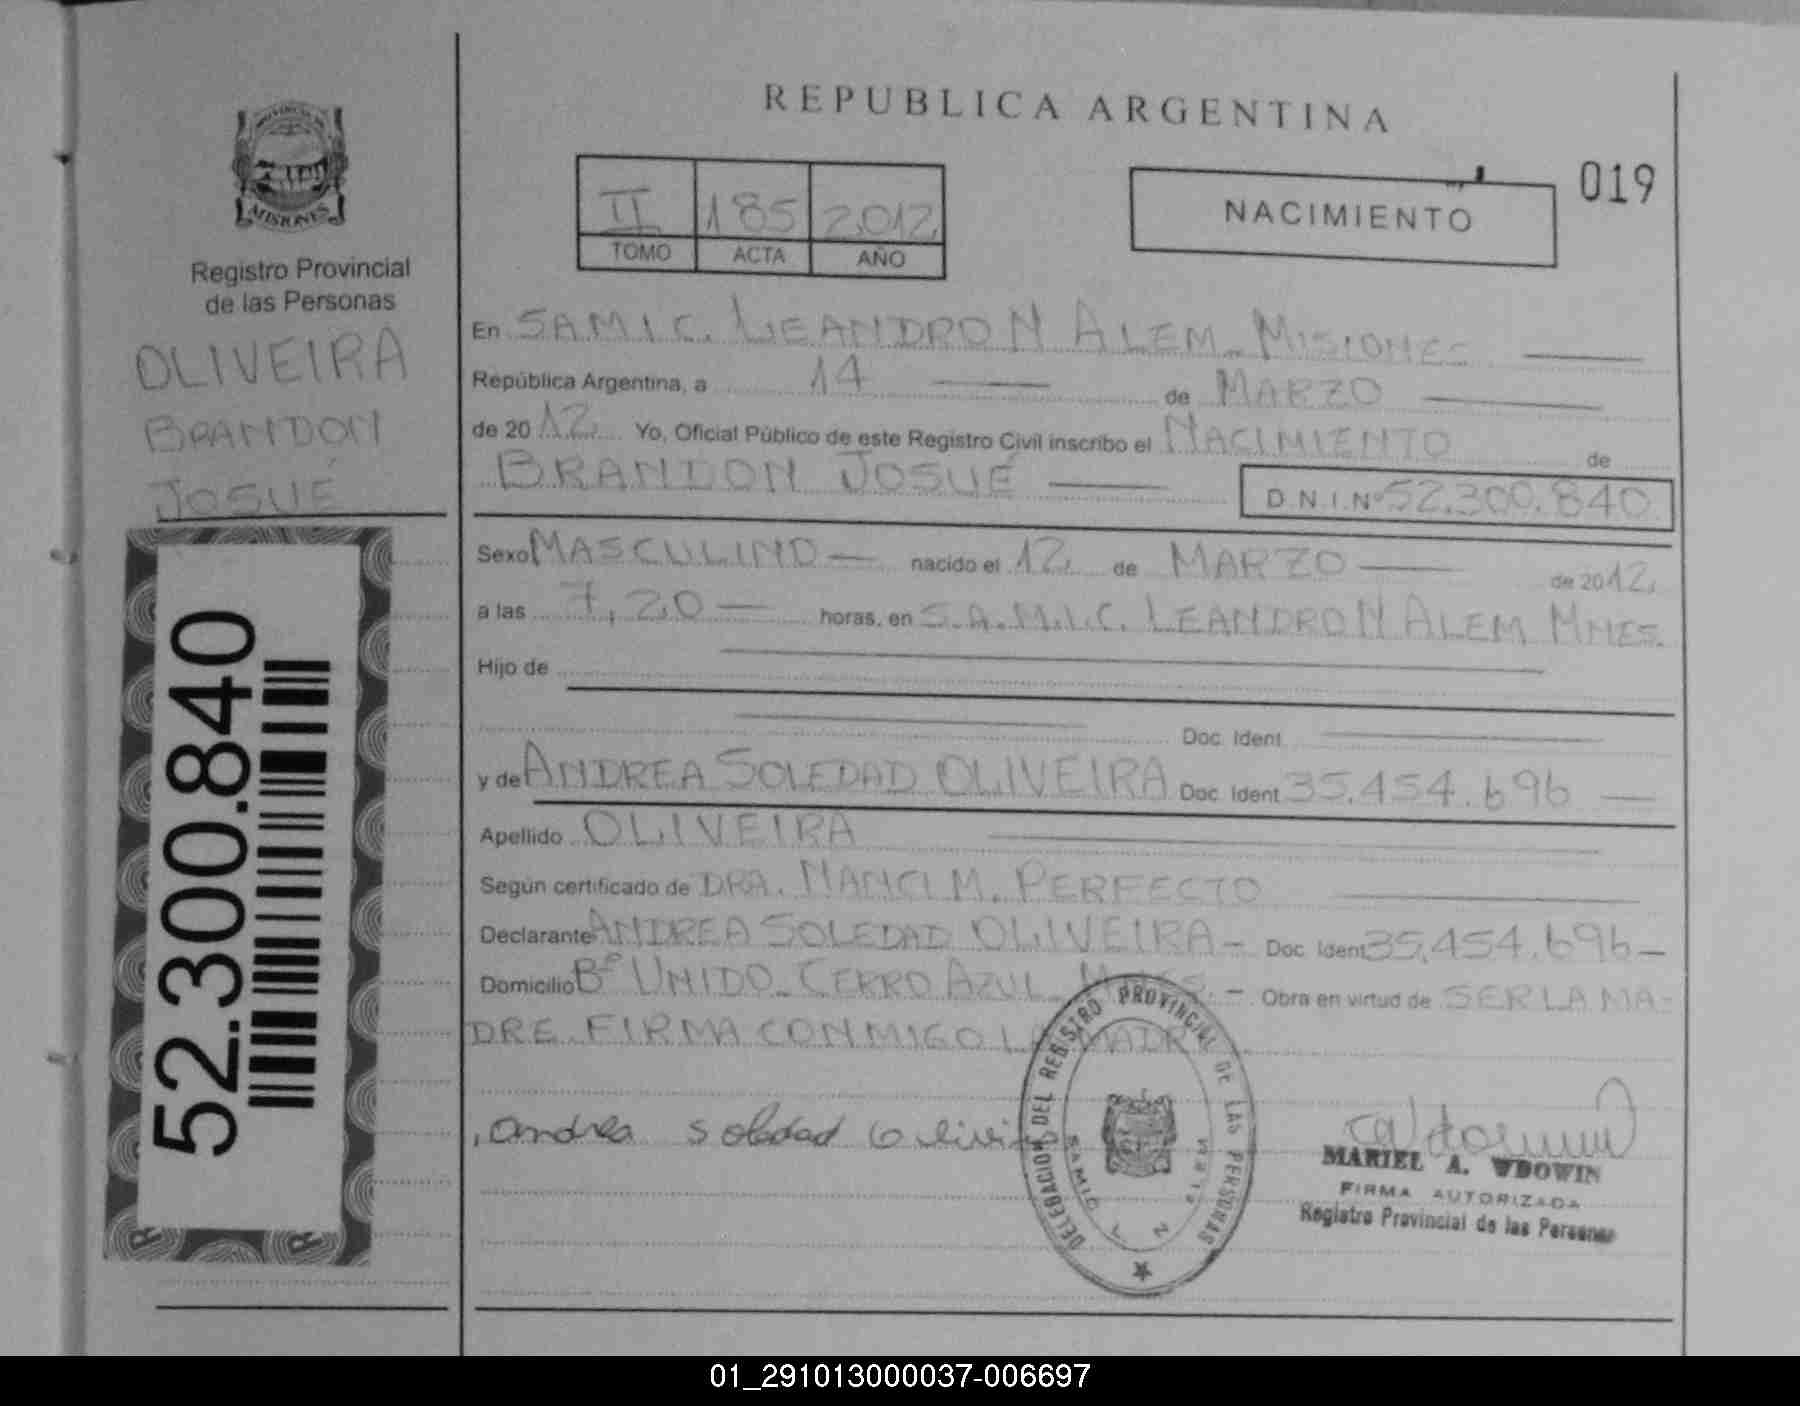 MISIONES
Registro Provincial
de las Personas
OLIVEIRA
BRANDON
JOSUÉ
52.300.840
REPUBLICA ARGENTINA
II 185 2012
TOMO ACTA AÑO
NACIMIENTO
019
En SAMIC. LEANDRO N ALEM_ MISIONES
República Argentina, a 14 de MARZO
de 2012 Yo, Oficial Público de este Registro Civil inscribo el NACIMIENTO de
BRANDON JOSUÉ D.N.I.Nº 52.300.840
Sexo MASCULINO nacido el 12 de MARZO de 2012
a las 7,20 horas, en S.A.M.I.C. LEANDRO N ALEM MNES.
Hijo de
Doc. Ident.
y de ANDREA SOLEDAD OLIVEIRA Doc. Ident 35.454.696
Apellido OLIVEIRA
Según certificado de DRA. NANCI M. PERFECTO
Declarante ANDREA SOLEDAD OLIVEIRA - Doc. Ident 35.454.696
Domicilio Bº UNIDO_ CERRO AZUL_ - Obra en virtud de SER LA MA-
DRE. FIRMA CONMIGO LA MADRE
andrea soledad oliveira
DELEGACION DEL REGISTRO PROVINCIAL DE LAS PERSONAS
SAMIC L N
MARIEL A. WDOWIN
FIRMA AUTORIZADA
Registro Provincial de las Personas
01_291013000037-006697